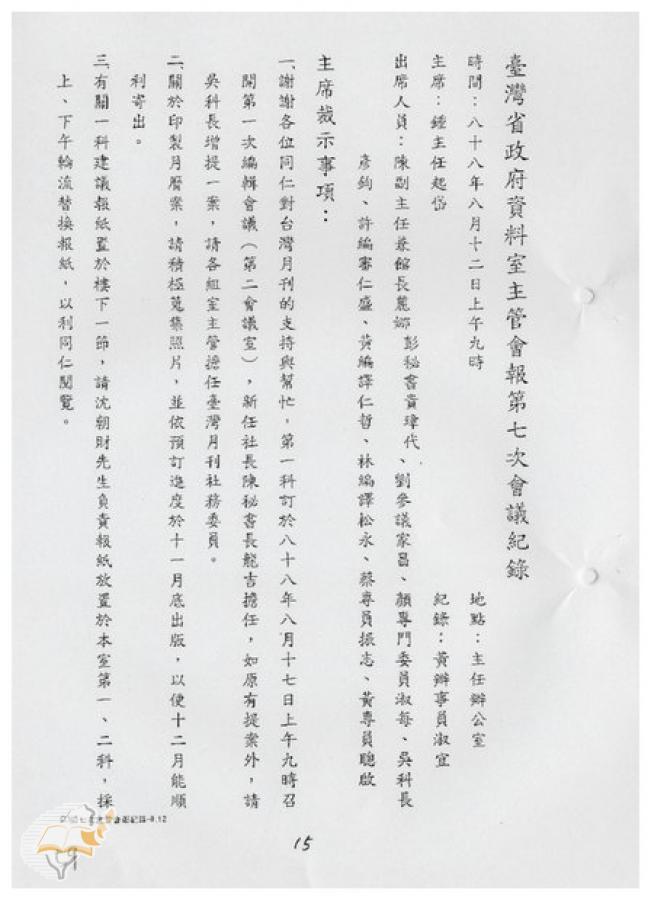 臺灣省政府資料室主管會報第七次會議紀錄
時間：八十八年八月十二日上午九時　地點：主任辦公室
主席：鍾主任起岱　紀錄：黃辦事員淑宜
出席人員：陳副主任兼館長麗娜 彭秘書貴瑋代、劉參議家昌、顏專門委員淑每、吳科長
彥鉤、許編審仁盛、黃編譯仁哲、林編譯松永、蔡專員振志、黃專員聰啟
主席裁示事項：
一、謝謝各位同仁對台灣月刊的支持與幫忙，第一科訂於八十八年八月十七日上午九時召
開第一次編輯會議（第二會議室），新任社長陳秘書長龍吉擔任，如原有提案外，請
吳科長增提一案，請各組室主管擔任臺灣月刊社務委員。
二、關於印製月曆案，請積極蒐集照片，並依預訂進度於十一月底出版，以便十二月能順
利寄出。
三、有關一科建議報紙置於樓下一節，請沈朝財先生負責報紙放置於本室第一、二科，採
上、下午輪流替換報紙，以利同仁閱覽。
15